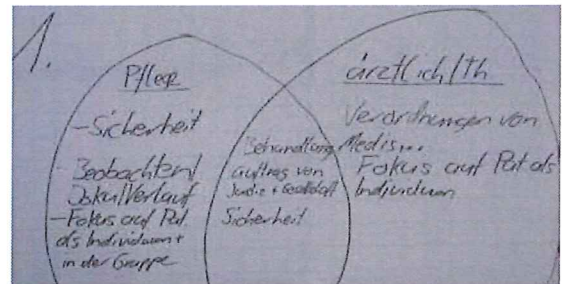 1.
Pflege
- Sicherheit
- Beobachten/
Doku/Verlauf
- Fokus auf Pat.
als Individuum +
in der Gruppe
Behandlung
auftrag von
Justiz + Gesellschaft
Sicherheit
ärztlich/th
Verordnungen von
Medis...
Fokus auf Pat als
Individuum